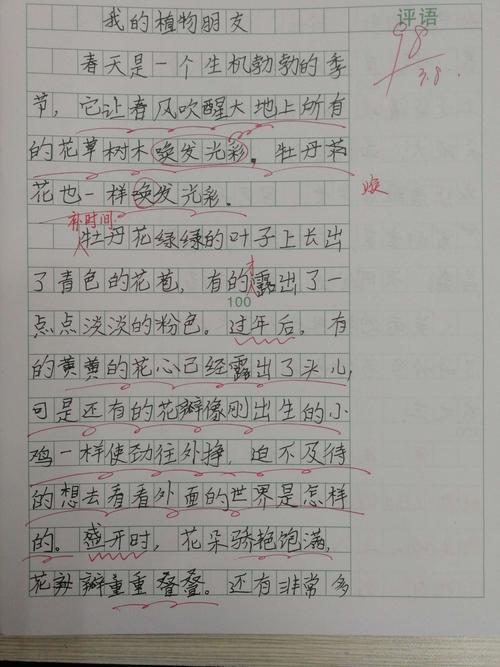 我的植物朋友
评语
98
3.8.
春天是一个生机勃勃的季
节，它让春风吹醒大地上所有
的花草树木唤发光彩。牡丹芍
花也一样唤发光彩。
焕
补时间
牡丹花绿绿的叶子上长出
了青色的花苞，有的才露出了一
100
点点淡淡的粉色。过年后，有
的黄黄的花心已经露出了头儿，
可是还有的花瓣像刚出生的小
鸡一样使劲往外挣，迫不及待
的想去看看外面的世界是怎样
的。盛开时，花朵骄艳饱满，
花瓣重重叠叠。还有非常多